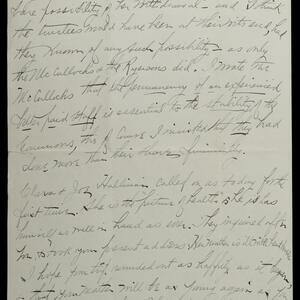 bare possibility of her withdrawal - and I think
the trustees would have been at their wits end, had
they known of any such possibility - as only
the McCullochs & the did. I wrote the
McCullochs that the permanency of an experienced
paid staff is essential to the stability of the
, tho of course I insisted that they had
done more than their share financially.
Clara & Joe called on us today for the
first time. She is the picture of health & he is as
as well in hand as ever. They inquired after
you & took your present address.
I hope your trip rounded out as happily as it began
& that your will be as young again as